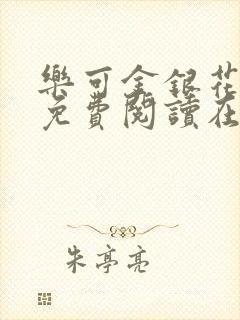 樂可金銀花
免費閱讀在
朱亭亮